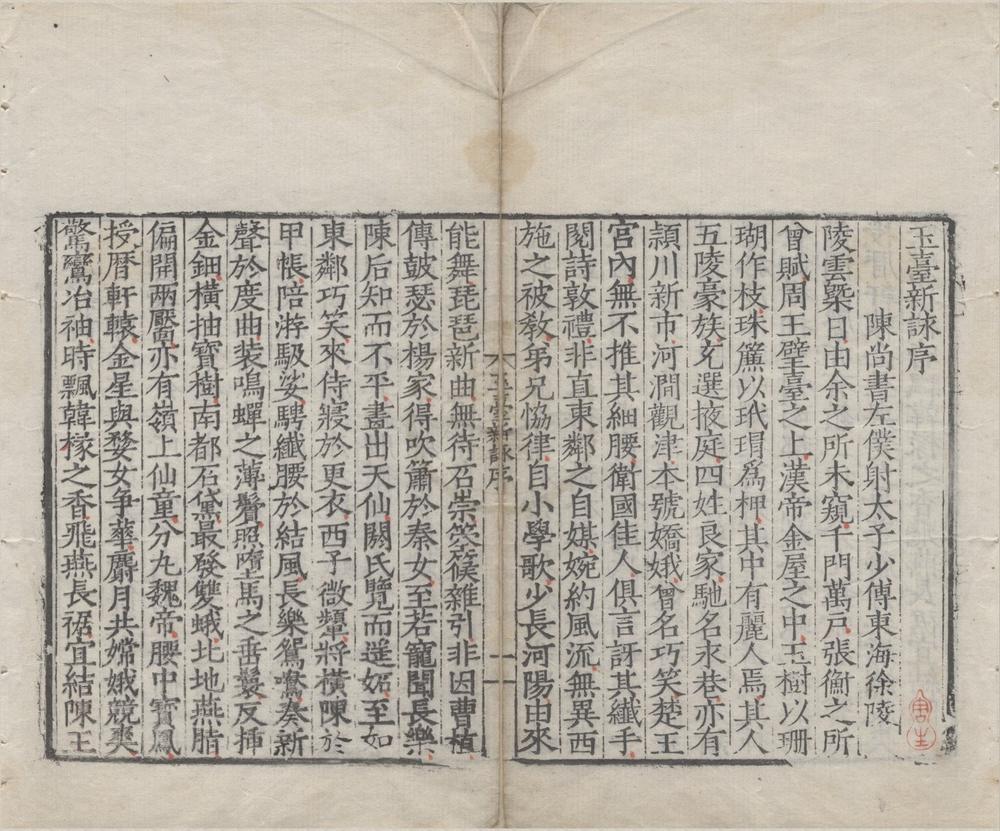 玉臺新詠序
陳尚書左僕射太子少傅東海徐陵
陵雲槩日由余之所未窺千門萬戶張衡之所
曾賦周王璧臺之上漢帝金屋之中玉樹以珊
瑚作枝珠簾以玳瑁爲柙其中有麗人焉其人
五陵豪族充選掖庭四姓良家馳名永巷亦有
潁川新市河澗觀津本號嬌娥曾名巧笑楚王
宮內無不推其細腰衛國佳人俱言訝其纖手
閱詩敦禮非直東鄰之自媒婉約風流無異西
施之被教弟兄恊律自小學歌少長河陽由來
玉臺新詠序
一
能舞琵琶新曲無待石崇箜篌雜引非因曹植
傳皷瑟於楊家得吹簫於秦女至若寵聞長樂
陳后知而不平畫出天仙閼氏覽而遥妬至如
東鄰巧笑來侍寢於更衣西子微顰將橫陳於
甲帳陪游馺娑騁纖腰於結風長樂鴛鴦奏新
聲於度曲装鳴蟬之薄鬢照墮馬之垂鬟反揷
金鈿橫抽寶樹南都石黛最發雙蛾北地燕脂
偏開兩靨亦有嶺上仙童分丸魏帝腰中寶鳳
授曆軒轅金星與婺女争華麝月共嫦娥競爽
驚鸞冶袖時飄韓掾之香飛燕長裾宜結陳王